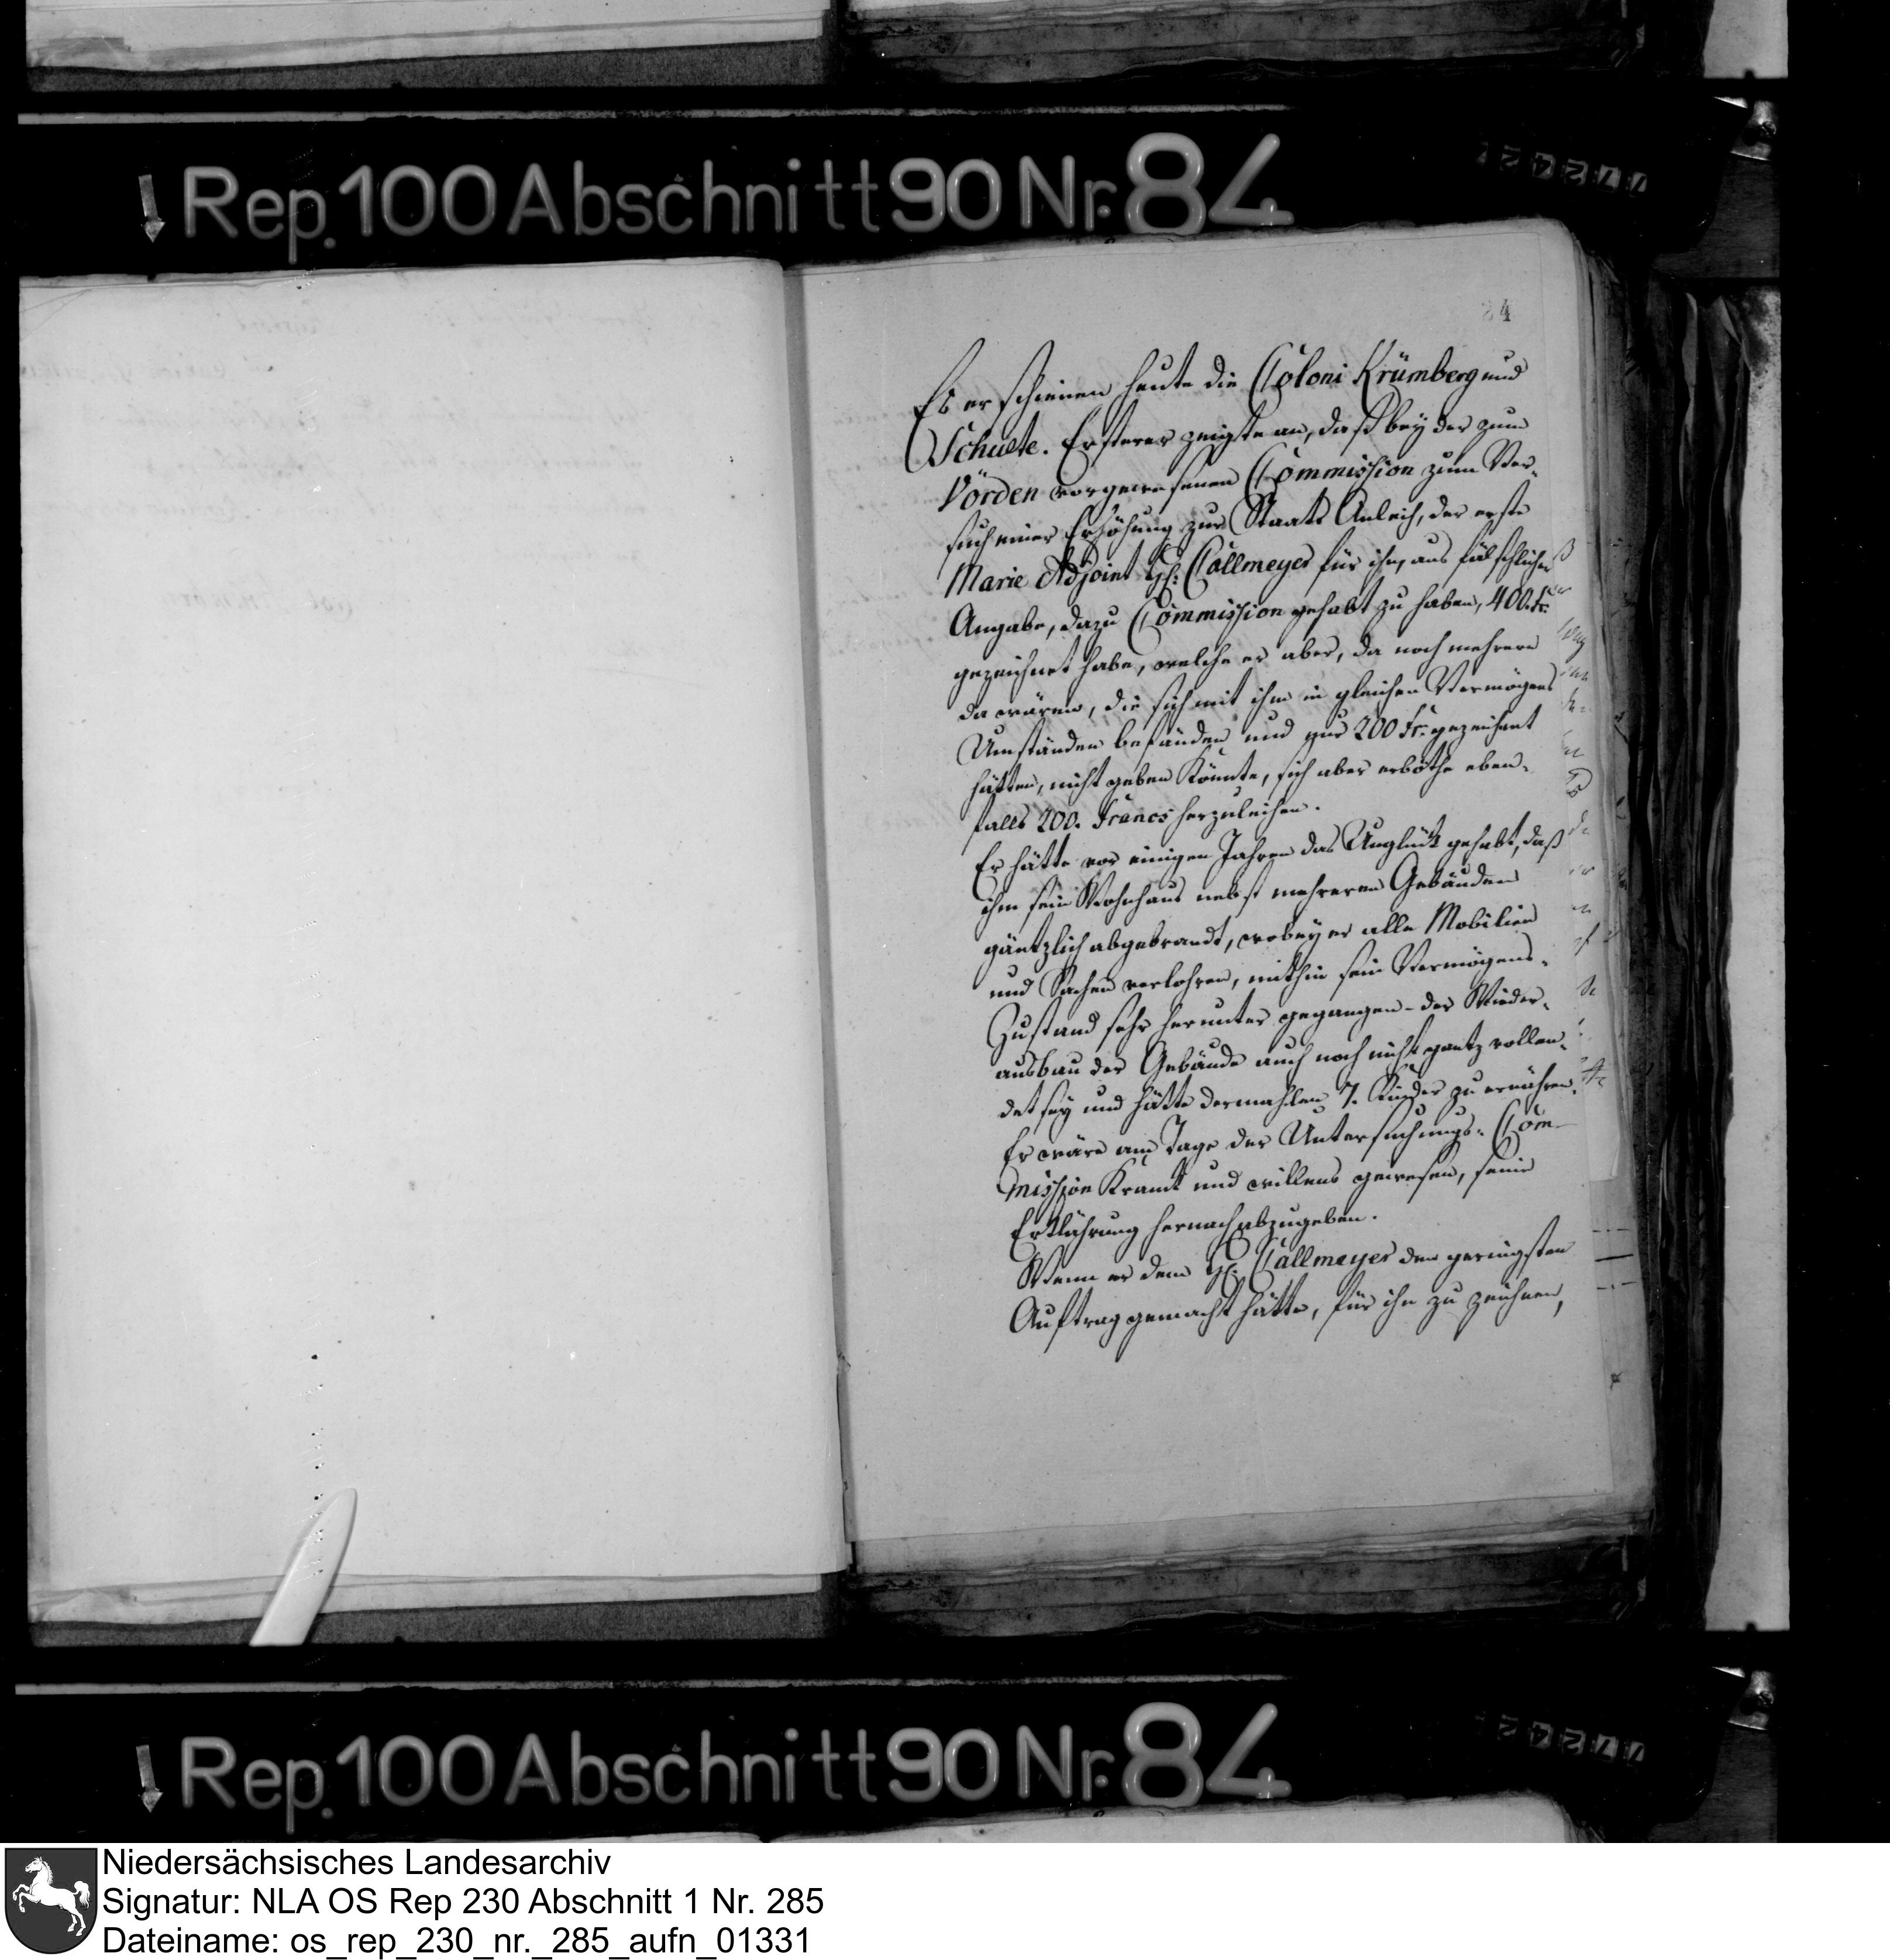 Rep. 100 Abschnitt 90 Nr. 84
84
Es erschienen heute die Coloni Krümberg und
Schulte. Ersterer zeigte an, daß bey der zum
Vörden vorgewesenen Commission zum Ver-
such einer Erhöhung zur Staats Anleih, der erste
Marie Adjoint H: Callmeyer für ihn, aus fälschlicher
Angabe, dazu Commission gehabt zu haben, 400. Fr.
gezeichnet habe, welche er aber, da noch mehrere
da wären, die sich mit ihm in gleichen Vermögens
Umständen befänden und nur 200 Fr. gezeichnet
hätten, nicht geben könnte, sich aber erböthe eben-
falls 200. Francs herzuleihen.
Er hätte vor einigen Jahren das Unglück gehabt, daß
ihm sein Wohnhaus nebst mehreren Gebäuden
gäntzlich abgebrandt, wobey er alle Mobilien
und Sachen verlohren, mithin sein Vermögens-
Zustand sehr herunter gegangen - der Wieder-
ausbau der Gebäude auch noch nicht gantz vollen-
det sey und hätte dermahlen 7. Kinder zu ernähren.
Er wäre am Tage der Untersuchungs-Com-
mission Krank und willens gewesen, seine
Erklährung hernach abzugeben.
Wenn er dem H: Callmeyer den geringsten
Auftrag gemacht hätte, für ihn zu zeichnen,
Rep. 100 Abschnitt 90 Nr. 84
Niedersächsisches Landesarchiv
Signatur: NLA OS Rep 230 Abschnitt 1 Nr. 285
Dateiname: os_rep_230_nr._285_aufn_01331